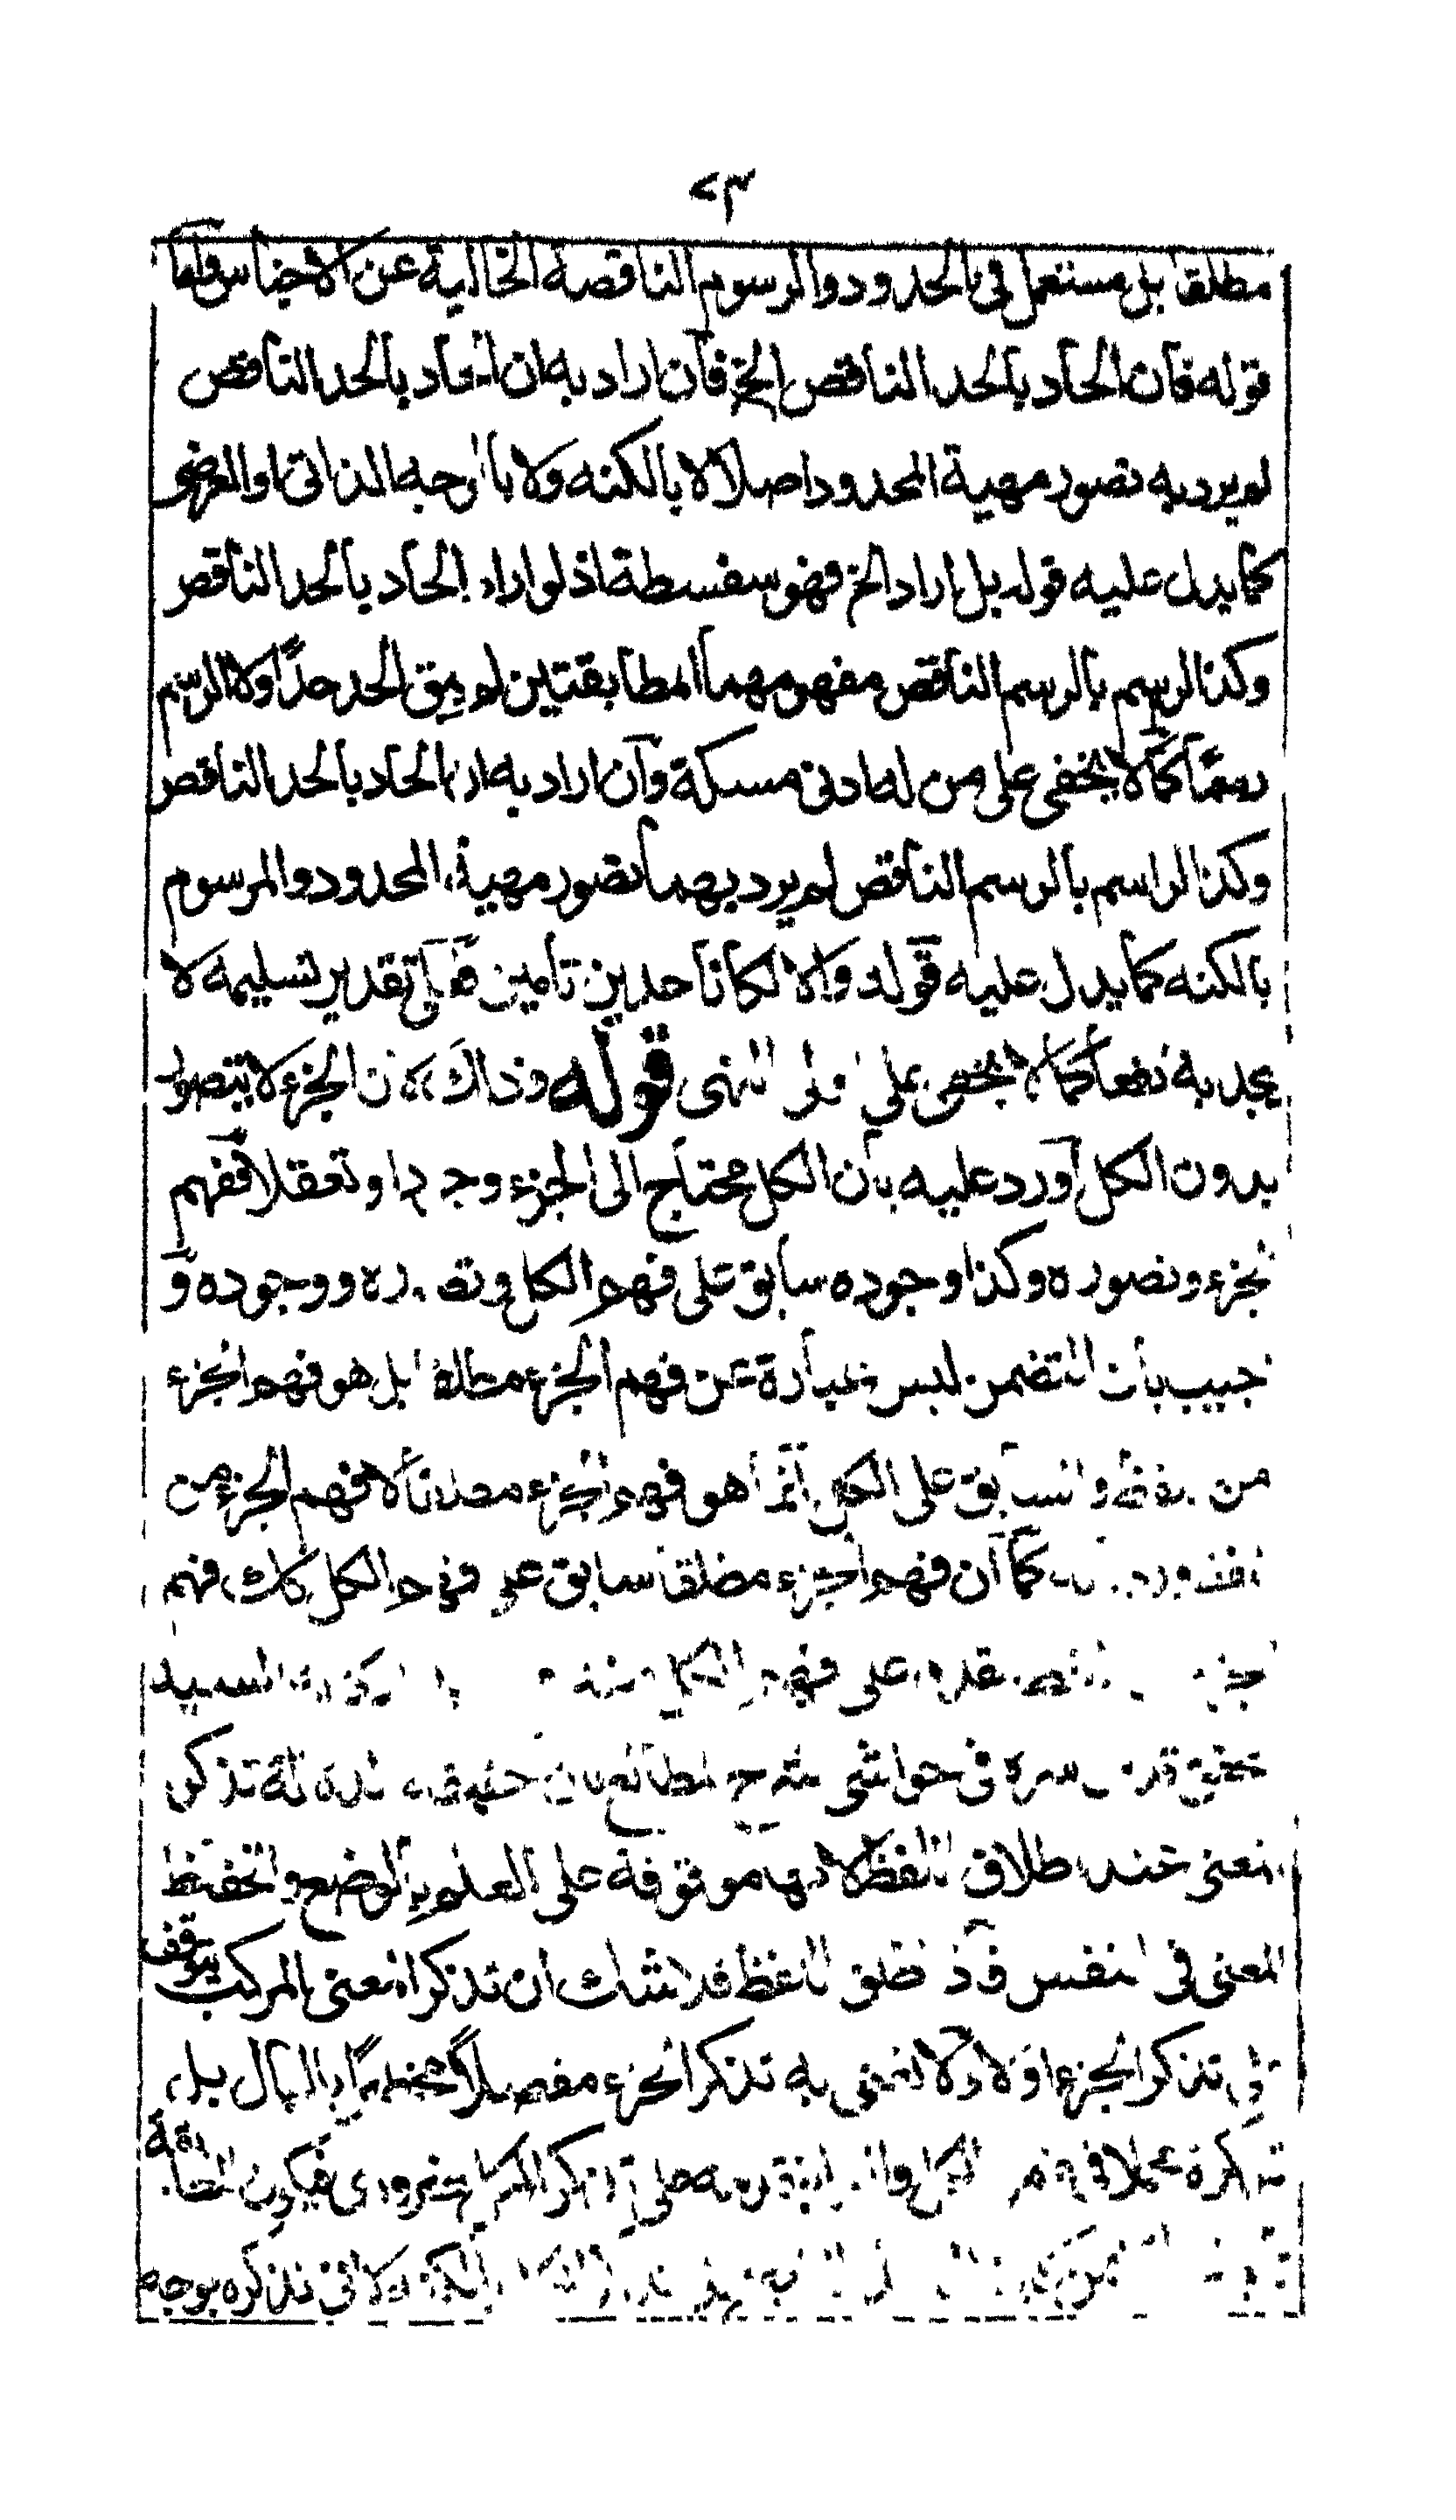 ٢٣
مطلقا بل مستعمل فى الحدود والرسوم الناقصة الخالية عن الاجناس واما
قوله فان الحاد بالحد الناقص الخ فان اراد به ان الحاد بالحد الناقص
لم يرد به تصور مهية المحدود اصلا لا بالكنه ولا بالوجه الذاتى او العرضى
كما يدل عليه قوله بل اراد الخ فهو سفسطة اذ لو اراد الحاد بالحد الناقص
وكذا الرسم بالرسم الناقص مفهومهما المطابقتين لم يبق الحد حدا ولا الرسم
رسما كما لا يخفى على من له ادنى مسكة وان اراد به ان الحاد بالحد الناقص
وكذا الراسم بالرسم الناقص لم يرد بهما تصور مهية المحدود والمرسوم
بالكنه كما يدل عليه قوله والا لكانا حدين تامين فعلى تقدير تسليمه لا
يجد به نفعا كما لا يخفى على اولى النهى قوله وذلك لان الجزء لا يتصور
بدون الكل اورد عليه بان الكل محتاج الى الجزء وجودا وتعقلا ففهم
الجزء وتصوره وكذا وجوده سابق على فهم الكل وتصوره ووجوده و
اجيب بان التضمن ليس عبارة عن فهم الجزء مطلقا بل هو فهم الجزء
من اللفظ والسابق على الكل انما هو فهم الجزء مطلقا لا فهم الجزء من
اللفظ ورد بانه كما ان فهم الجزء مطلقا سابق على فهم الكل كذلك فهم
الجزء من اللفظ مقدم على فهم الكل منه السيد
المحقق قدس سره فى حواشى شرح المطالع بان حقيقة الدلالة تذكر
المعنى عند اطلاق اللفظ لانها موقوفة على العلم بالوضع وانحفاظ
المعنى فى النفس فاذا اطلق اللفظ فلا شك ان تذكر المعنى المركب يتوقف
على تذكر الجزء اولا ولا نعنى به تذكر الجزء مفصلا مخطرا بالبال بل
تذكره مجملا فى ضمن الكل وان تقدمه على تذكر الكل ضرورى فيكون
ولا فى تذكره بوجه